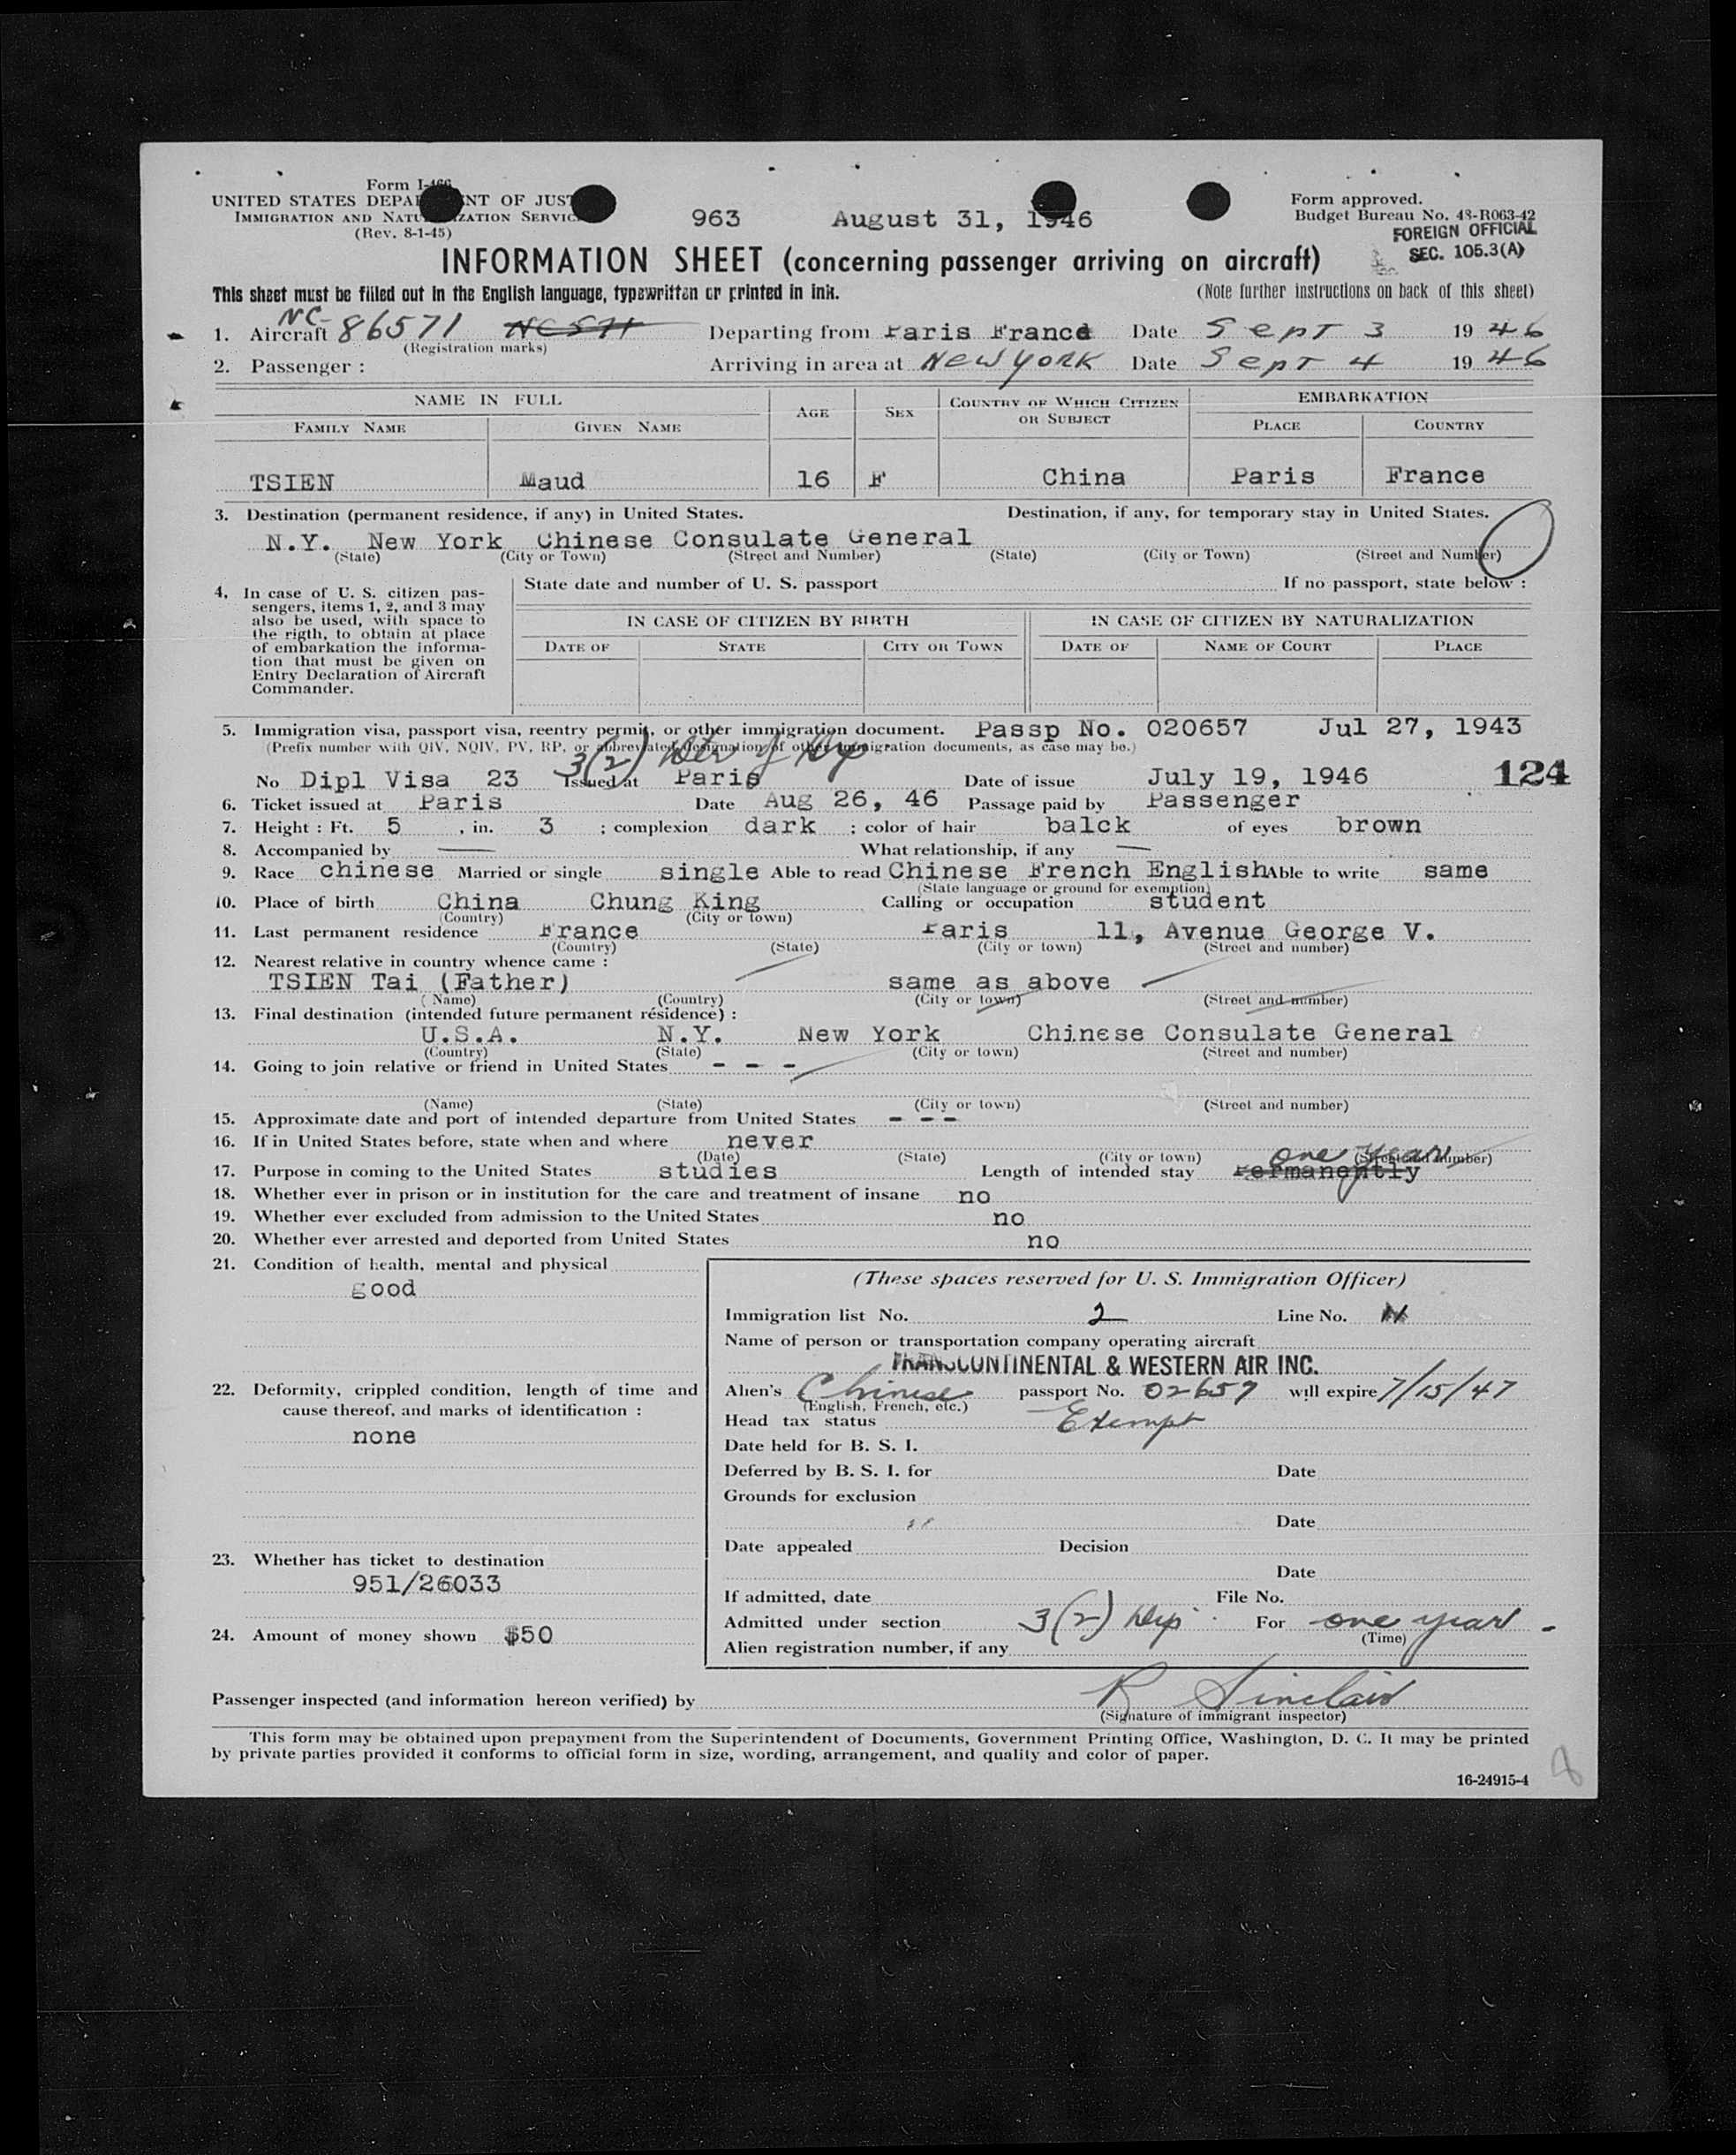 Form I-466
UNITED STATES DEPARTMENT OF JUSTICE
IMMIGRATION AND NATURALIZATION SERVICE
(Rev. 8-1-45)
963 August 31, 1946
Form approved.
Budget Bureau No. 43-R063-42
FOREIGN OFFICIAL
SEC. 105.3(A)
INFORMATION SHEET (concerning passenger arriving on aircraft)
This sheet must be filled out in the English language, typewritten or printed in ink. (Note further instructions on back of this sheet)
1. Aircraft NC-86571 Departing from Paris France Date Sept 3 1946
(Registration marks)
2. Passenger : Arriving in area at New York Date Sept 4 1946
NAME IN FULL AGE SEX COUNTRY OF WHICH CITIZEN OR SUBJECT EMBARKATION
FAMILY NAME GIVEN NAME PLACE COUNTRY
TSIEN Maud 16 F China Paris France
3. Destination (permanent residence, if any) in United States. Destination, if any, for temporary stay in United States.
N.Y. New York Chinese Consulate General
(State) (City or Town) (Street and Number) (State) (City or Town) (Street and Number)
4. In case of U. S. citizen pas-
sengers, items 1, 2, and 3 may
also be used, with space to
the rigth, to obtain at place
of embarkation the informa-
tion that must be given on
Entry Declaration of Aircraft
Commander.
State date and number of U. S. passport If no passport, state below :
IN CASE OF CITIZEN BY BIRTH IN CASE OF CITIZEN BY NATURALIZATION
DATE OF STATE CITY OR TOWN DATE OF NAME OF COURT PLACE
5. Immigration visa, passport visa, reentry permit, or other immigration document. Passp No. 020657 Jul 27, 1943
(Prefix number with QIV, NQIV, PV, RP, or abbreviated designation of other immigration documents, as case may be.)
3(2) Der of Dip
No Dipl Visa 23 Issued at Paris Date of issue July 19, 1946 124
6. Ticket issued at Paris Date Aug 26, 46 Passage paid by Passenger
7. Height : Ft. 5 , in. 3 ; complexion dark ; color of hair balck of eyes brown
8. Accompanied by —— What relationship, if any —
9. Race chinese Married or single single Able to read Chinese French English Able to write same
(State language or ground for exemption)
10. Place of birth China Chung King Calling or occupation student
(Country) (City or town)
11. Last permanent residence France Paris 11, Avenue George V.
(Country) (State) (City or town) (Street and number)
12. Nearest relative in country whence came :
TSIEN Tai (Father) same as above
(Name) (Country) (City or town) (Street and number)
13. Final destination (intended future permanent résidence) :
U.S.A. N.Y. New York Chinese Consulate General
(Country) (State) (City or town) (Street and number)
14. Going to join relative or friend in United States - - -
(Name) (State) (City or town) (Street and number)
15. Approximate date and port of intended departure from United States - - -
16. If in United States before, state when and where never
(Date) (State) (City or town) (Street and number)
one year
17. Purpose in coming to the United States studies Length of intended stay Permanently
18. Whether ever in prison or in institution for the care and treatment of insane no
19. Whether ever excluded from admission to the United States no
20. Whether ever arrested and deported from United States no
21. Condition of health, mental and physical
good
22. Deformity, crippled condition, length of time and
cause thereof, and marks of identification :
none
23. Whether has ticket to destination
951/26033
24. Amount of money shown $50
(These spaces reserved for U. S. Immigration Officer)
Immigration list No. 2 Line No.
Name of person or transportation company operating aircraft
TRANSCONTINENTAL & WESTERN AIR INC.
Alien's Chinese passport No. 02657 will expire 7/15/47
(English, French, etc.)
Head tax status Exempt
Date held for B. S. I.
Deferred by B. S. I. for Date
Grounds for exclusion
Date
Date appealed Decision
Date
If admitted, date File No.
Admitted under section 3(2) Dip For one year
(Time)
Alien registration number, if any
Passenger inspected (and information hereon verified) by R Sinclair
(Signature of immigrant inspector)
This form may be obtained upon prepayment from the Superintendent of Documents, Government Printing Office, Washington, D. C. It may be printed
by private parties provided it conforms to official form in size, wording, arrangement, and quality and color of paper.
16-24915-4
8